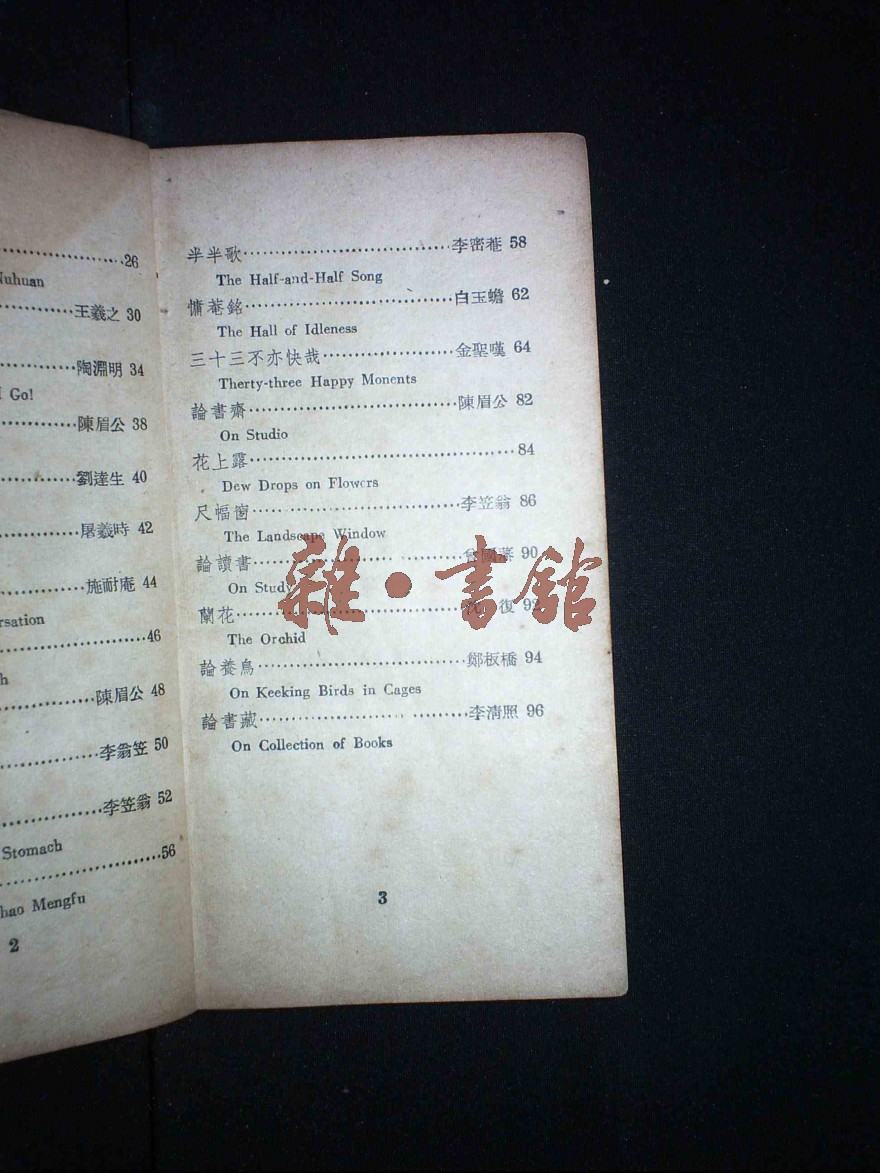 26
Nuhuan
王羲之 30
陶淵明 34
Go!
陳眉公 38
劉達生 40
屠羲時 42
施耐庵 44
rsation
46
h
陳眉公 48
李翁笠 50
李笠翁 52
Stomach
56
hao Mengfu
2
半半歌 李密菴 58
The Half-and-Half Song
慵菴銘 白玉蟾 62
The Hall of Idleness
三十三不亦快哉 金聖嘆 64
Therty-three Happy Monents
論書齋 陳眉公 82
On Studio
花上露 84
Dew Drops on Flowers
尺幅窗 李笠翁 86
The Landscape Window
論讀書 國 90
On Study
蘭花 復 92
The Orchid
論養鳥 鄭板橋 94
On Keeking Birds in Cages
論書藏 李清照 96
On Collection of Books
3
雜·書館